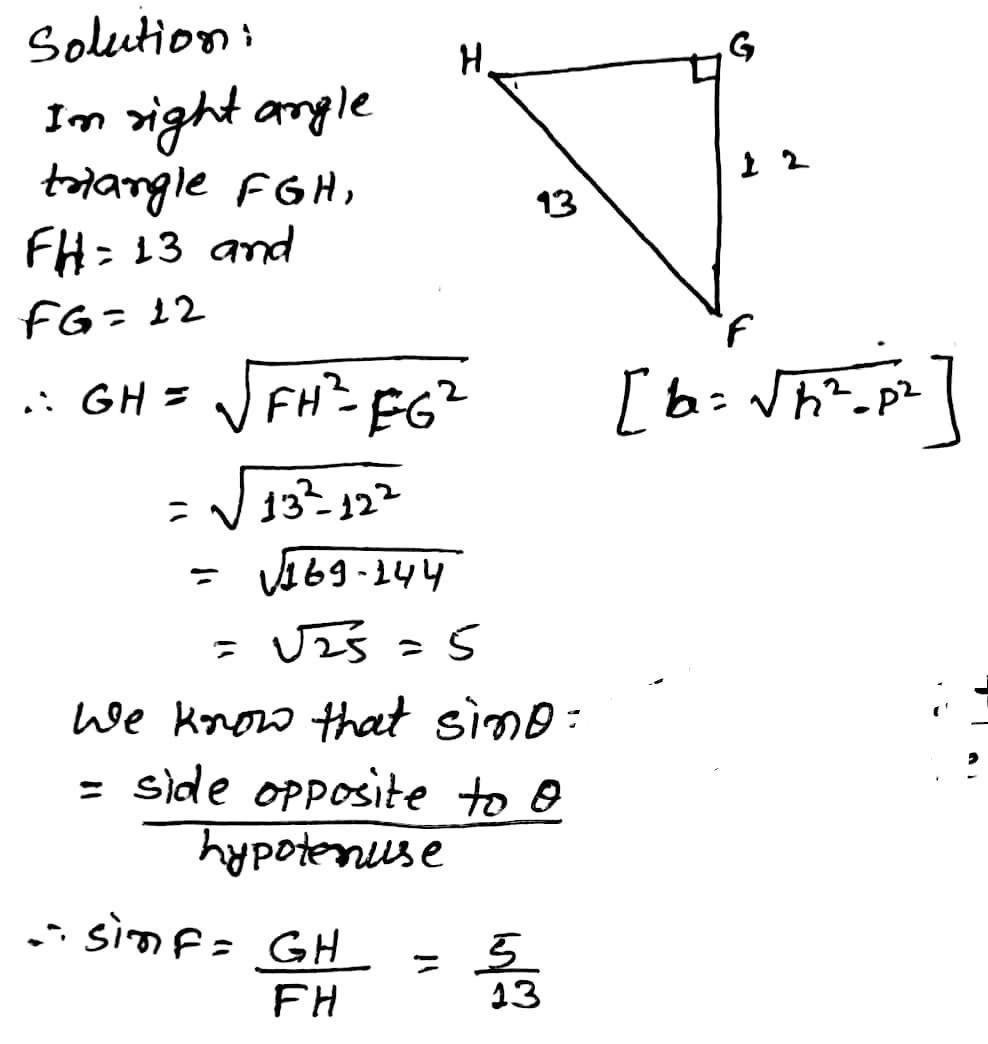 Solution:
In right angle
triangle FGH,
FH = 13 and
FG = 12
H
G
13
12
F
∴ GH = √FH² - FG²
[b = √h² - p²]
= √13² - 12²
= √169 - 144
= √25 = 5
We know that sinθ =
= side opposite to θ
hypotenuse
∴ sin F = GH = 5
FH 13